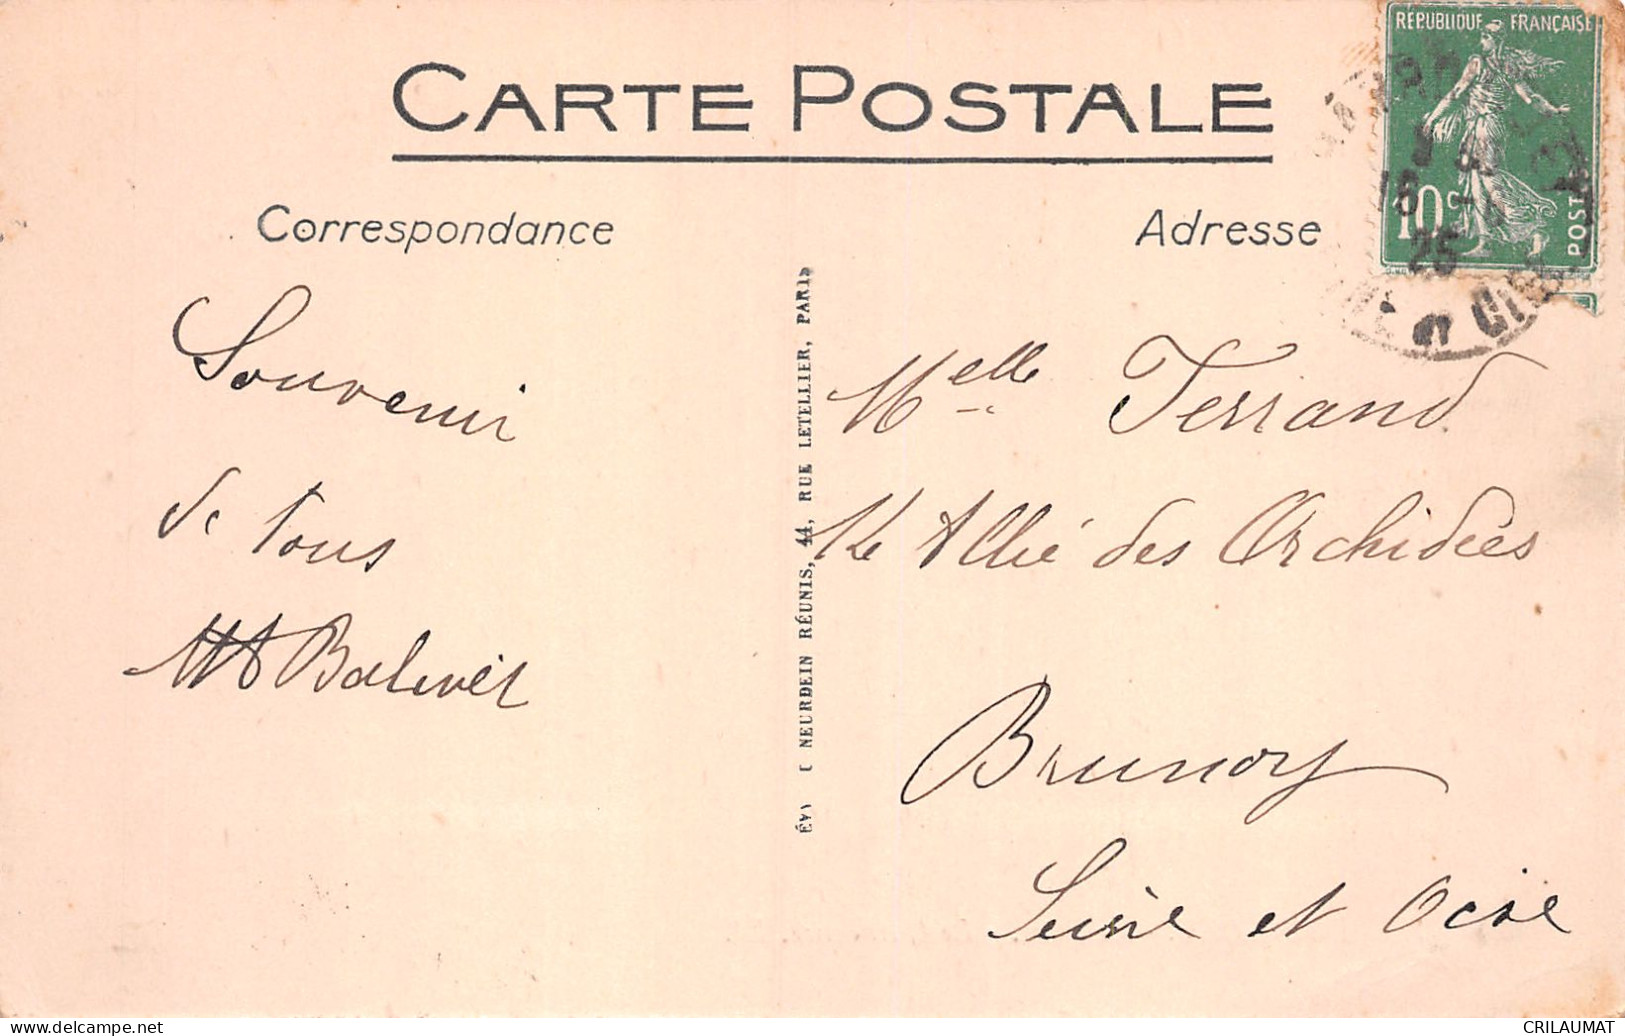 CARTE POSTALE
Correspondance
Adresse
RÉPUBLIQUE FRANÇAISE
10c
POSTES
25
Souvenir
de tous
Melle Ferrand
Allée des Orchidées
Brunoy
Seine et Oise
NEURDEIN RÉUNIS, 44, RUE LETELLIER, PARIS
CRILAUMAT